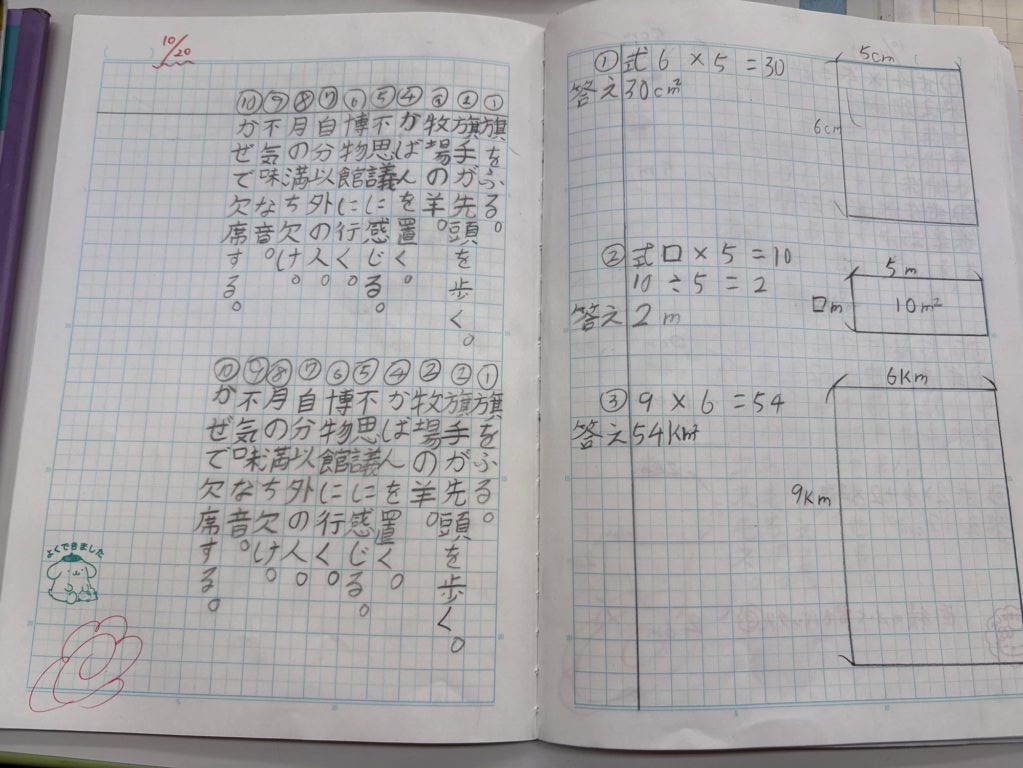 10/20
①旗をふる。
②旗手が先頭を歩く。
③牧場の羊。
④かばんを置く。
⑤不思議に感じる。
⑥博物館に行く。
⑦自分以外の人。
⑧月の満ち欠け。
⑨不気味な音。
⑩かぜで欠席する。
①旗をふる。
②旗手が先頭を歩く。
②牧場の羊。
④かばんを置く。
⑤不思議に感じる。
⑥博物館に行く。
⑦自分以外の人。
⑧月の満ち欠け。
⑨不気味な音。
⑩かぜで欠席する。
よくできました
①式 6 × 5 = 30
答え 30cm²
5cm
6cm
②式 □ × 5 = 10
10 ÷ 5 = 2
答え 2m
5m
□m
10m²
③ 9 × 6 = 54
答え 54Km²
6Km
9Km